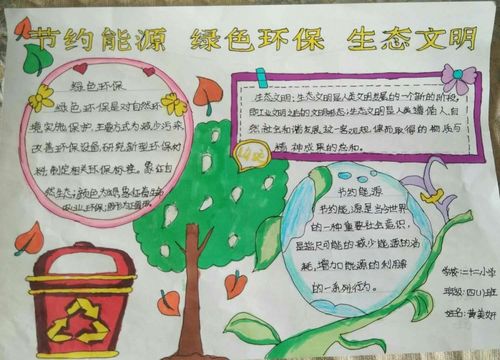 节约能源 绿色环保 生态文明
绿色环保
绿色环保是对自然环
境实施保护,主要方式为减少污染
改善环保设施,研究新型环保材
料,制定相关环保标准。象征自
然生态;颜色为绿
生态文明:生态文明是人类文明发展的一个新的阶段,
即工业文明之后的文明形态;生态文明是人类遵循人、自
然、社会和谐发展这一客观规律而取得的物质与
精神成果的总和。
节约能源
节约能源是当今世界
的一种重要社会意识,
是指尽可能的减少能源的消
耗,增加能源的利用率
的一系列行为。
学校:二十二小学
班级:四(1)班
姓名:黄美妍